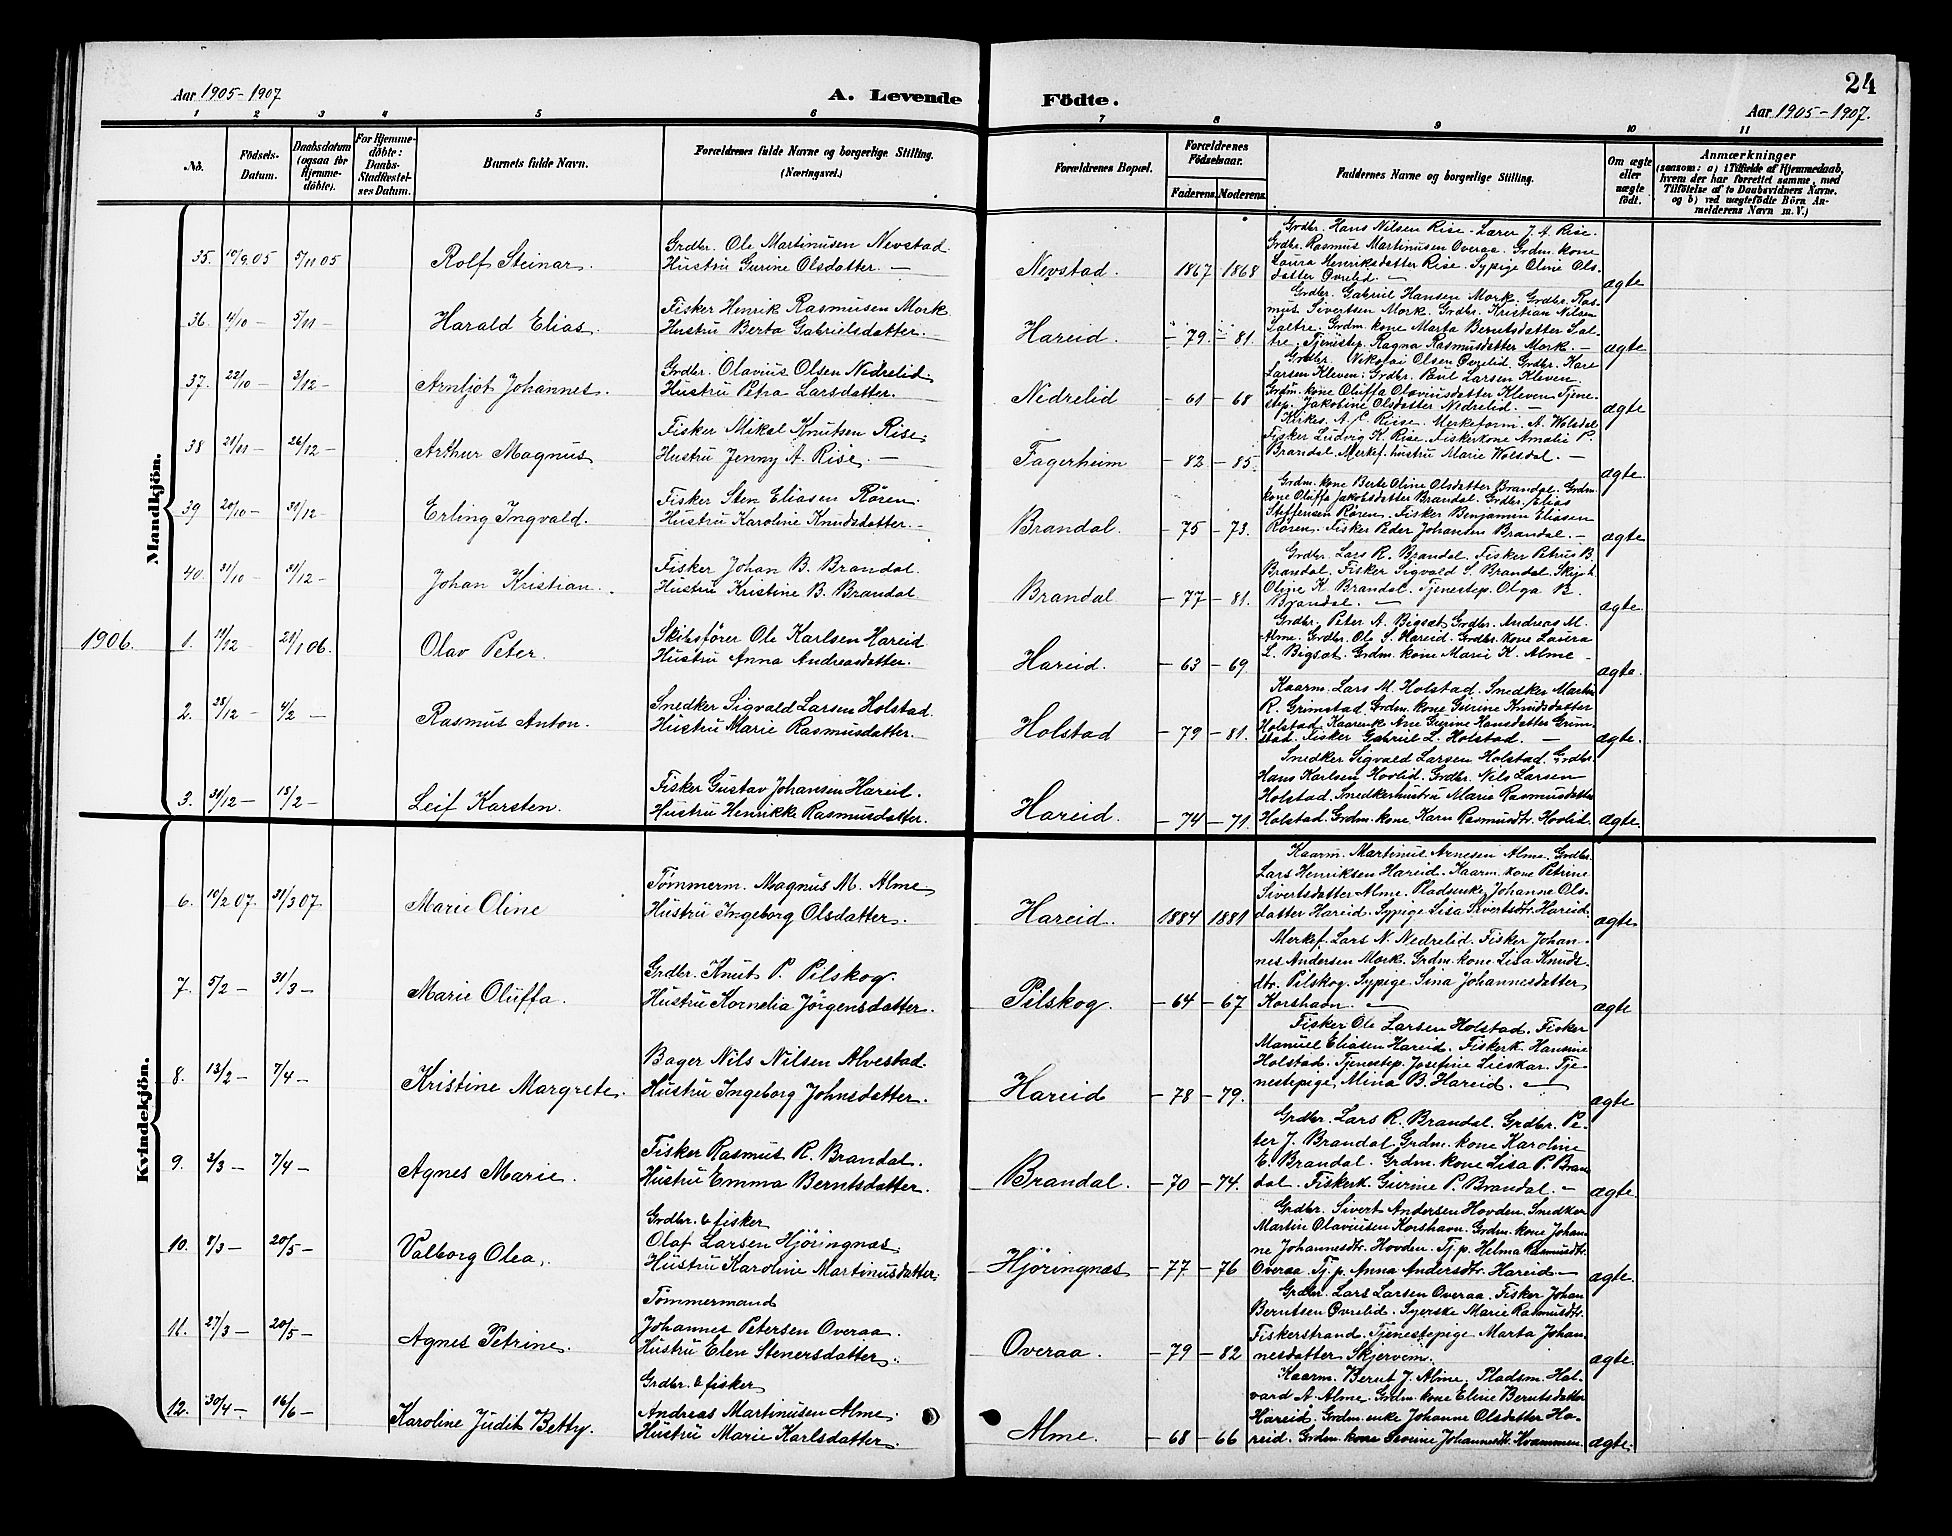 24
Aar 1905-1907
A. Levende
Födte.
Aar 1905-1907.
1 2 3 4 5 6 7 8 9 10 11
No.
Födsels-Datum.
Daabsdatum (ogsaa for Hjemme-döbte).
For Hjemme-döbte: Daabs-Stadfæstel-ses Datum.
Barnets fulde Navn.
Forældrenes fulde Navne og borgerlige Stilling. (Næringsvei.)
Forældrenes Bopæl.
Forældrenes Födselsaar.
Faderens. Moderens.
Faddernes Navne og borgerlige Stilling.
Om ægte eller uægte födt.
Anmærkninger
(saasom: a) i Tilfælde af Hjemmedaab,
hvem der har forrettet samme, med
Tilföielse af to Daabsvidners Navne.
og b) ved uægtefödte Börn An-
melderens Navn m. V.)
Mandkjön.
35. 10/9 05 5/11 05 Rolf Steinar.
Grdbr. Ole Martinusen Nevstad
Hustru Gurine Olsdatter. —
Nevstad. 1867 1868
Grdbr. Hans Nilsen Rise. Lærer J. A. Rise.
Grdbr. Rasmus Martinusen Overaa. Grdm. kone
Laura Henriksdatter Rise. Sypige Oline Ols-
datter Øvrelid. —
ægte
36. 14/10 — 5/11 — Harald Elias.
Fisker Henrik Rasmusen Mork
Hustru Berta Gabrielsdatter.
Hareid. — 79. — 81.
Grdbr. Gabriel Hansen Mork. Grdbr. Ras-
mus Sivertsen Mork. Grdbr. Kristian Nilsen
Saltre. Grdm. kone Marta Berntsdatter Sal-
tre, Tjenestep. Ragna Rasmusdatter Mork. —
ægte
37. 22/10 — 3/12 — Arnljot Johannes.
Grdbr. Olavius Olsen Nedrelid.
Hustru Petra Larsdatter.
Nedrelid — 61 — 68
Grdbr. Nikolai Olsen Øvrelid. Grdbr. Kare
Larsen Kleven. Grdbr. Paul Larsen Kleven
Grdm. kone Oluffa Olaviusdatter Kleven. Tjene-
step. Jakobine Olsdatter Nedrelid. —
ægte
38 21/11 — 26/12 — Arthur Magnus
Fisker Mikal Knutsen Rise.
Hustru Jenny A. Rise. —
Fagerheim — 82 — 85.
Kirkes. A. C. Riise. Merkeform. A. Wolsdal
Fisker Ludvig K. Rise. Fiskerkone Amalie P.
Brandal. Merkef. hustru Marie Wolsdal. —
ægte
39 20/10 — 31/12 — Erling Ingvald.
Fisker Sten Eliasen Røren.
Hustru Karoline Knudsdatter. —
Brandal. — 75 — 73.
Grdm. kone Berte Oline Olsdatter Brandal. Grdm.
kone Oluffa Jakobsdatter Brandal. Grdbr. Elias
Steffensen Røren. Fisker Benjamin Eliasen
Røren. Fisker Peder Johansen Brandal. —
ægte
40. 31/10 31/12 — Johan Kristian.
Fisker Johan B. Brandal.
Hustru Kristine B. Brandal
Brandal — 77 — 81.
Grdbr. Lars R. Brandal. Fisker Petrus B.
Brandal. Fisker Sigvald S. Brandal.
Oline K. Brandal. Tjenestep. Olga B.
Brandal. —
ægte
1906. 1. 12 — 21/1 06. Olav Peter.
Skibsfører Ole Karlsen Hareid
Hustru Anna Andreasdatter.
Hareid. — 63 — 69.
Grdbr. Peter A. Bigsæt. Grdbr. Andreas M.
Alme. Grdbr. Ole S. Hareid. Grdbr. kone Laura
L. Bigsæt. Grdm. kone Marie K. Alme —
ægte.
2. 28/12 — 4/2 — Rasmus Anton.
Snedker Sigvald Larsen Holstad.
Hustru Marie Rasmusdatter.
Holstad — 79 — 81.
Kaarm. Lars M. Holstad. Snedker Martin
R. Grimstad. Grdm. kone Gurine Knudsdatter
Holstad. Kaarenk. Ane Gurine Hansdatter Grim-
stad. Fisker Gabriel L. Holstad. —
ægte.
3. 31/12 — 18/2 — Leif Karsten.
Fisker Gustav Johansen Hareid.
Hustru Henrikke Rasmusdatter.
Hareid. — 74 — 71.
Snedker Sigvald Larsen Holstad. Grdbr.
Hans Karlsen Hovlid. Grdbr. Nils Larsen
Holstad. Snedkerhustru Marie Rasmusdatter
Holstad. Grdm. kone Karn Rasmusdtr. Hovlid.
ægte.
Kvindekjön.
6. 10/2 07. 31/3 07. Marie Oline
Tømmerm. Magnus M. Alme
Hustru Ingeborg Olsdatter.
Hareid. 1884 1881
Kaarm. Martinus Arnesen Alme. Grdbr.
Lars Henriksen Hareid. Kaarm. kone Petrine
Sivertsdatter Alme. Pladsenke Johanne Ols-
datter Hareid. Sypige Lisa Sivertsdtr. Hareid.
ægte
7. 5/2 — 31/3 — Marie Oluffa.
Grdbr. Knut P. Pilskog.
Hustru Kornelia Jørgensdatter.
Pilskog. — 64 — 67
Merkef. Lars N. Nedrelid. Fisker Johan-
nes Andersen Mork. Grdm. kone Lisa Knuds-
dtr. Pilskog. Sypige Sina Johannesdatter
Korshavn. —
ægte
8. 13/2 — 7/4 — Kristine Margrete.
Bager Nils Nilsen Alvestad
Hustru Ingeborg Johnsdatter.
Hareid — 78 — 79.
Fisker Ole Larsen Holstad. Fisker
Manuel Eliasen Hareid. Fiskerk. Hansine
Holstad. Tjenestep. Josefine Lieskar. Tje-
nestepige Mina B. Hareid. —
ægte
9. 3/3 — 7/4 — Agnes Marie.
Fisker Rasmus R. Brandal.
Hustru Emma Berntsdatter.
Brandal. — 70 — 74.
Grdbr. Lars R. Brandal. Grdbr. Pe-
ter J. Brandal. Grdm. kone Karoline
E. Brandal. Grdm. kone Lisa P. Bran-
dal. Fiskerk. Gurine P. Brandal. —
ægte.
10. 8/3 — 20/5 — Valborg Olea.
Grdbr. & fisker
Olaf Larsen Hjøringnæs.
Hustru Karoline Martinusdatter.
Hjøringnæs — 77 — 76
Grdbr. Sivert Andersen Hovden. Snedker
Martin Olaviusen Korshavn. Grdm. kone Johan-
ne Johannesdtr. Hovden. Tj. p. Helma Rasmusdtr.
Overaa. Tj. p. Anna Andersdtr. Hareid —
ægte.
11. 27/3 — 20/5 — Agnes Petrine.
Tømmermand
Johannes Petersen Overaa.
Hustru Elen Stenersdatter.
Overaa. — 79 — 82
Grdbr. Lars Larsen Overaa. Fisker Johan
Berntsen Øvrelid. Syerske Marie Rasmusdtr.
Fiskerstrand. Tjenestepige Marta Johan-
nesdatter Skjervem.
ægte.
12. 30/4 — 16/6 — Karoline Judit Betty.
Grdbr. & fisker
Andreas Martinusen Alme.
Hustru Marie Karlsdatter.
Alme. — 68 — 66
Kaarm. Bernt J. Alme. Pladsm. Hal-
vard A. Alme. Grdm. kone Eline Berntsdatter
Hareid. Grdm. enke Johanne Olsdatter Ha-
reid. Grdm. kone Severine Johannesdtr. Kvammen.
ægte.